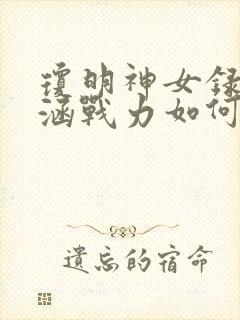 瓊明神女錄
涵戰力如何
遺忘的宿命